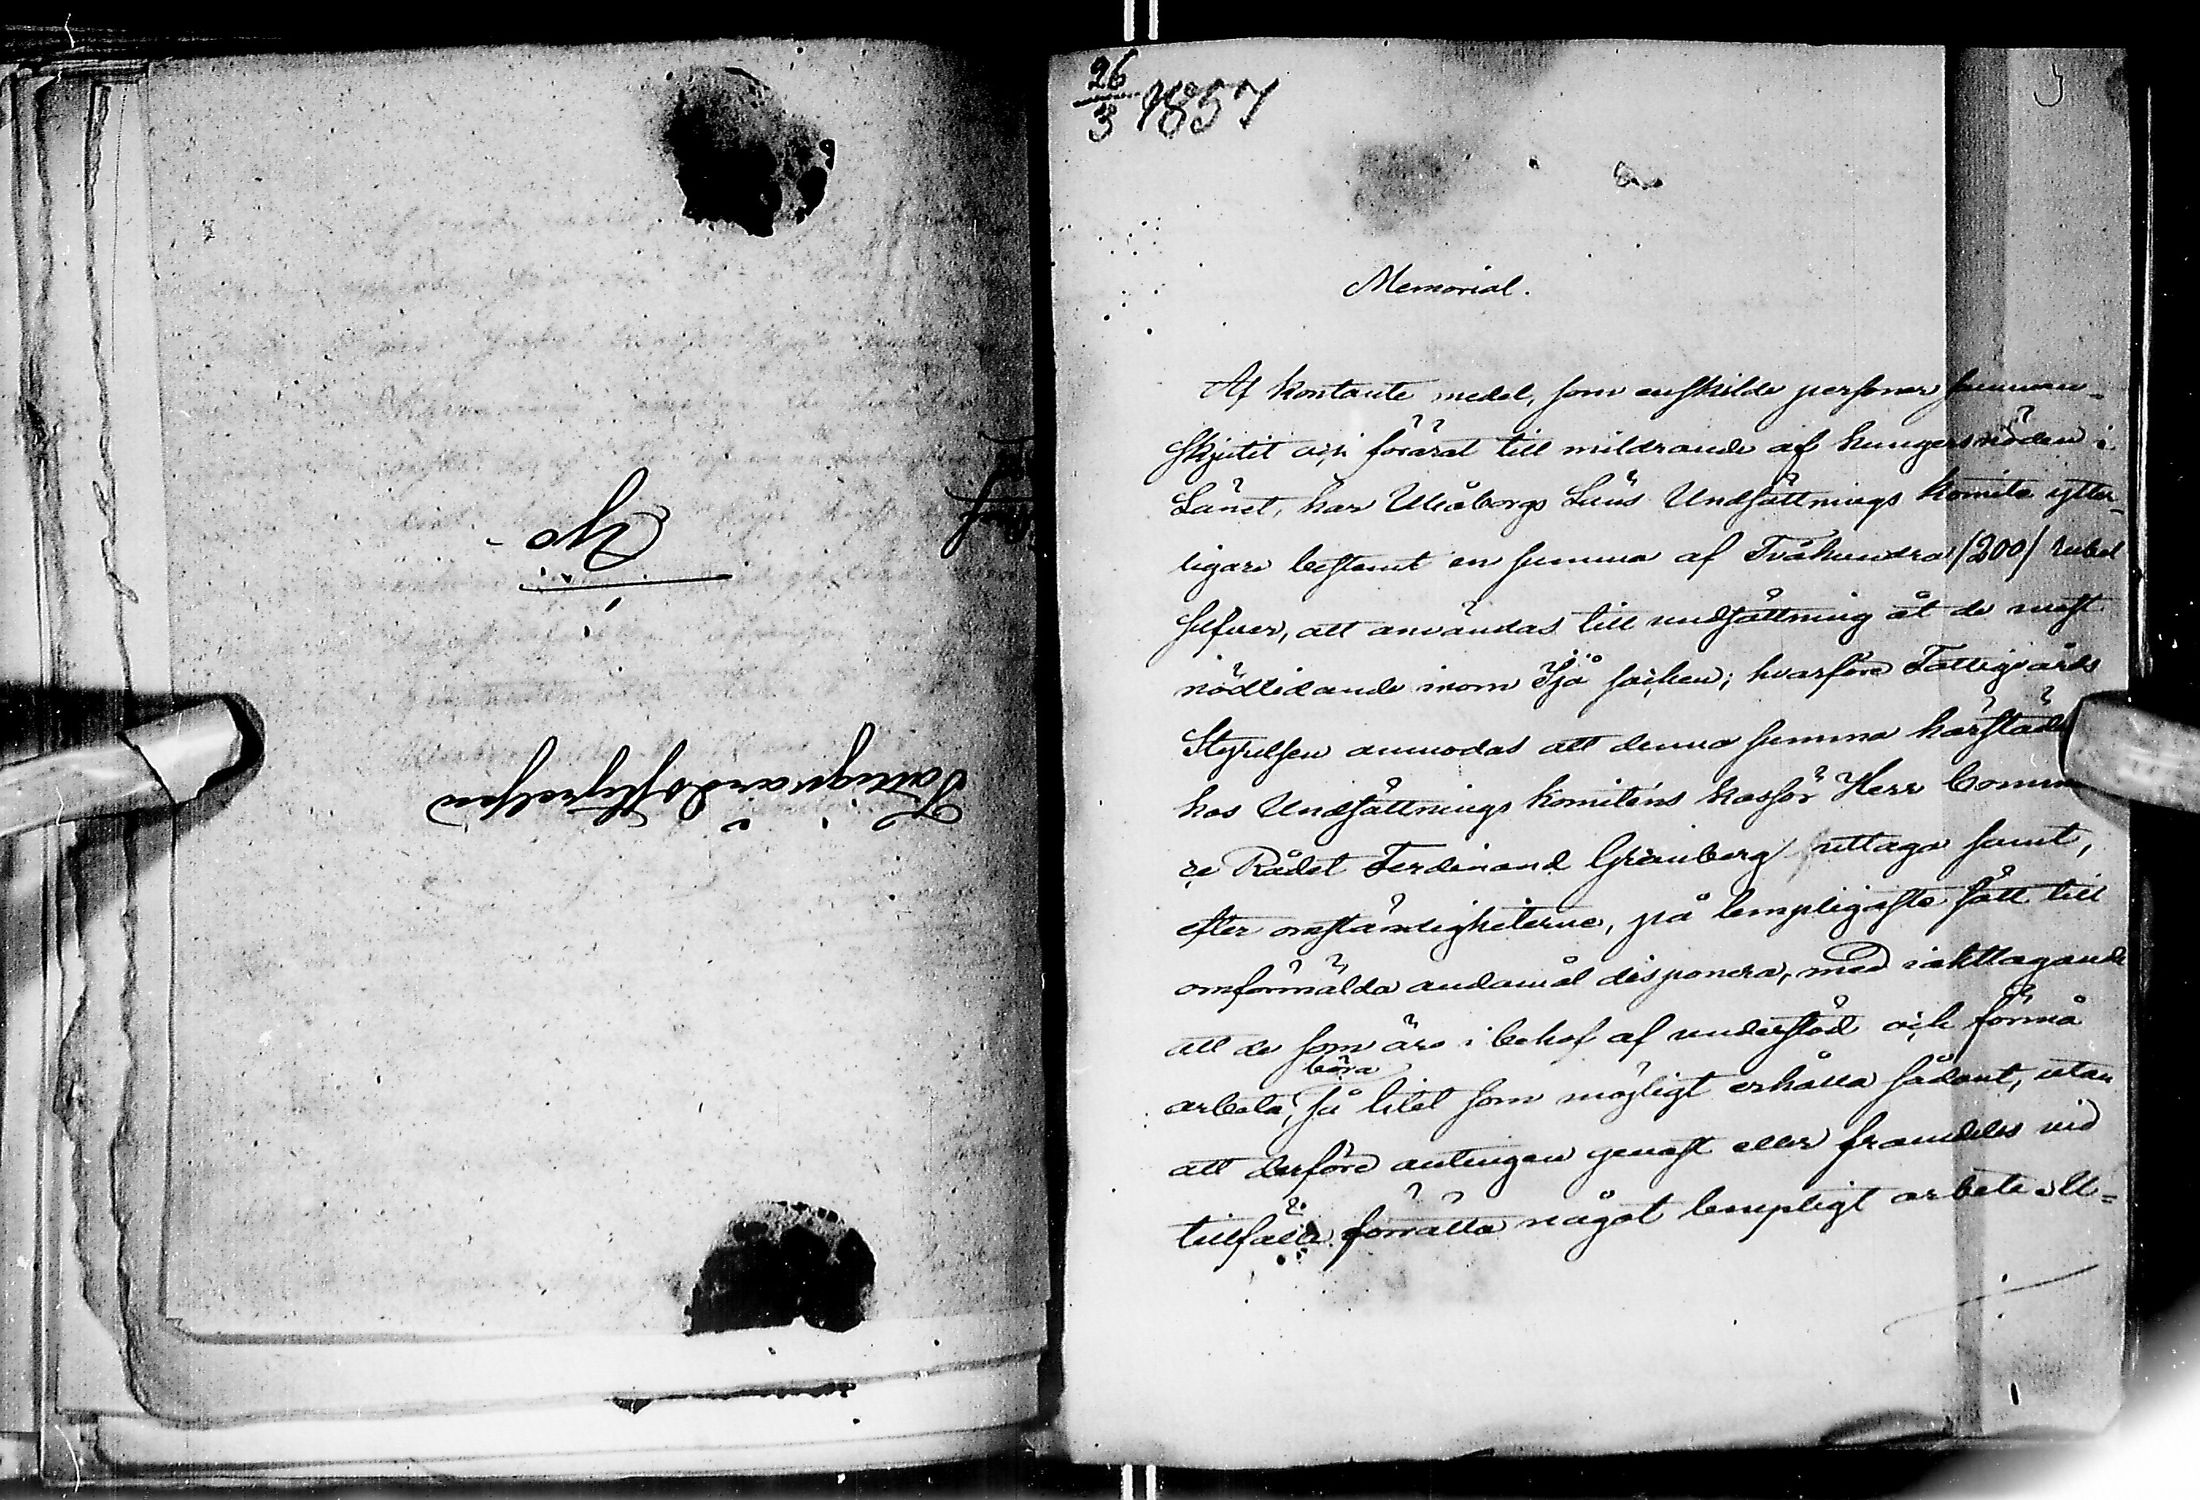 Fattigvårdsstyrelsen
i
Ijo
26/3 1857
Memorial.
Af kontante medel, som enskilde personer samman-
skjutit och förärat till mildrande af hungersnöden i
Länet, har Uleåborgs Läns Undsättnings komite ytter-
ligare bestemt en summa af Tvåhundra /200/ rubel
silfver, att användas till undsättning åt de mest
nödlidande inom Ijå socken; hvarföre Fattigvårds
Styrelsen anmodas att denna summa härstädes
hos Undsättnings Komiténs kassör Herr Comm
ce Rådet Ferdinand Granberg uttaga samt,
efter omständigheterne, på lempligaste sätt till
omförmälda andamål disponera, med iakttagande
att de som äro i behof af understöd och förmå
arbeta, böra så litet som möjligt erhålla sådant, utan
att derföre antingen genast eller framdeles vid
tillfälle förrätta något lempligt arbete. Ul=